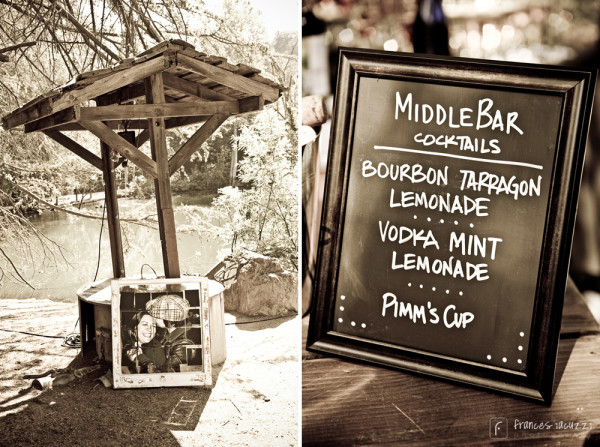 MIDDLEBAR
COCKTAILS
BOURBON TARRAGON
LEMONADE
VODKA MINT
LEMONADE
PIMM'S CUP
frances iacuzzi